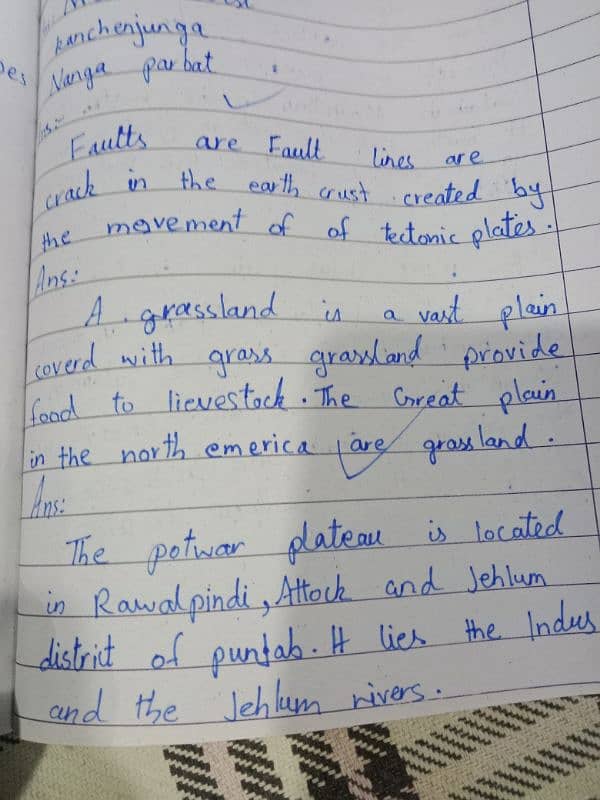 kanchenjunga
Nanga parbat
Ans:
Faults are Fault lines are
crack in the earth crust created by
the movement of of tectonic plates.
Ans:
A grassland is a vast plain
coverd with grass grassland provide
food to lievestock. The Great plain
in the north emerica are grassland.
Ans:
The potwar plateau is located
in Rawalpindi, Attock and Jehlum
district of punjab. It lies the Indus
and the Jehlum rivers.